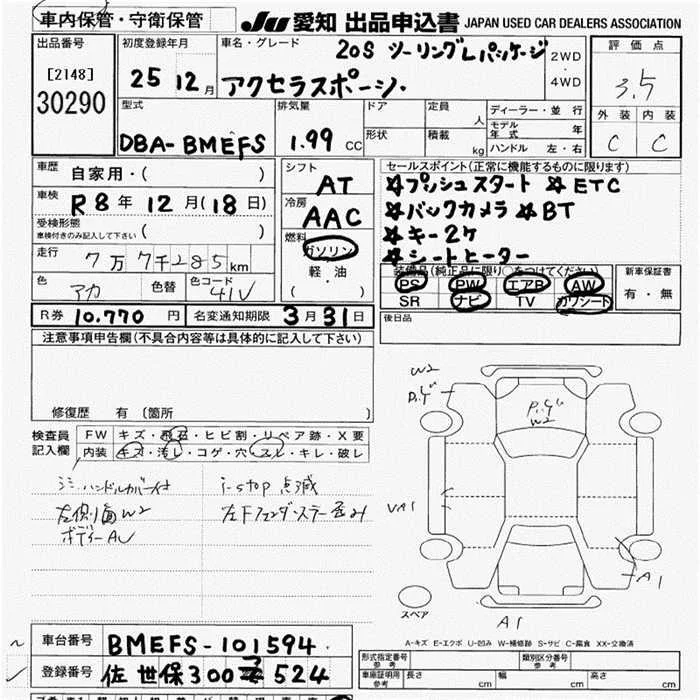 車内保管・守衛保管
JU 愛知 出品申込書 JAPAN USED CAR DEALERS ASSOCIATION
出品番号
[2148]
30290
初度登録年月
25 12月
車名・グレード
20S ツーリングLパッケージ
アクセラスポーツ
2WD
・
4WD
評価点
3.5
外装 内装
C C
型式
DBA-BMEFS
排気量
1.99 CC
ドア
形状
定員 人
積載 kg
ディーラー・並行
モデル年式 年
ハンドル 左・右
車歴 自家用・( )
車検 R8年12月(18日)
受検形態
車検付きのみ記入して下さい ( )
走行 7万7千285km
色 アカ 色替 色コード 41V
シフト AT
冷房 AAC
燃料 ガソリン
軽油
( )
セールスポイント(正常に機能するものに限ります)
☆プッシュスタート ☆ETC
☆バックカメラ ☆BT
☆キー2ケ
☆シートヒーター
装備品(純正品に限り○をつけてください)
PS PW エアB AW
SR ナビ TV カワシート
新車保証書
有・無
R券 10,770円 名変通知期限 3月31日
後日品
注意事項申告欄(不具合内容等は具体的に記入して下さい)
修復歴 有 (箇所 )
検査員記入欄
FW キズ・飛石・ヒビ割・リペア跡・X要
内装 キズ・汚レ・コゲ・穴・スレ・キレ・破レ
ハンドルカバー付
左側面W2
ボディーAU
i-stop 点滅
W2
W2
VA1
A1
A1
スペア
A-キズ E-エクボ U-凹み W-補修跡 S-サビ C-腐食 XX-交換済
車台番号 BMEFS-101594
登録番号 佐世保300 そ 524
形式指定番号 参考
類別区分番号 参考
車庫証明用 参考 長さ cm 幅 cm 高さ cm